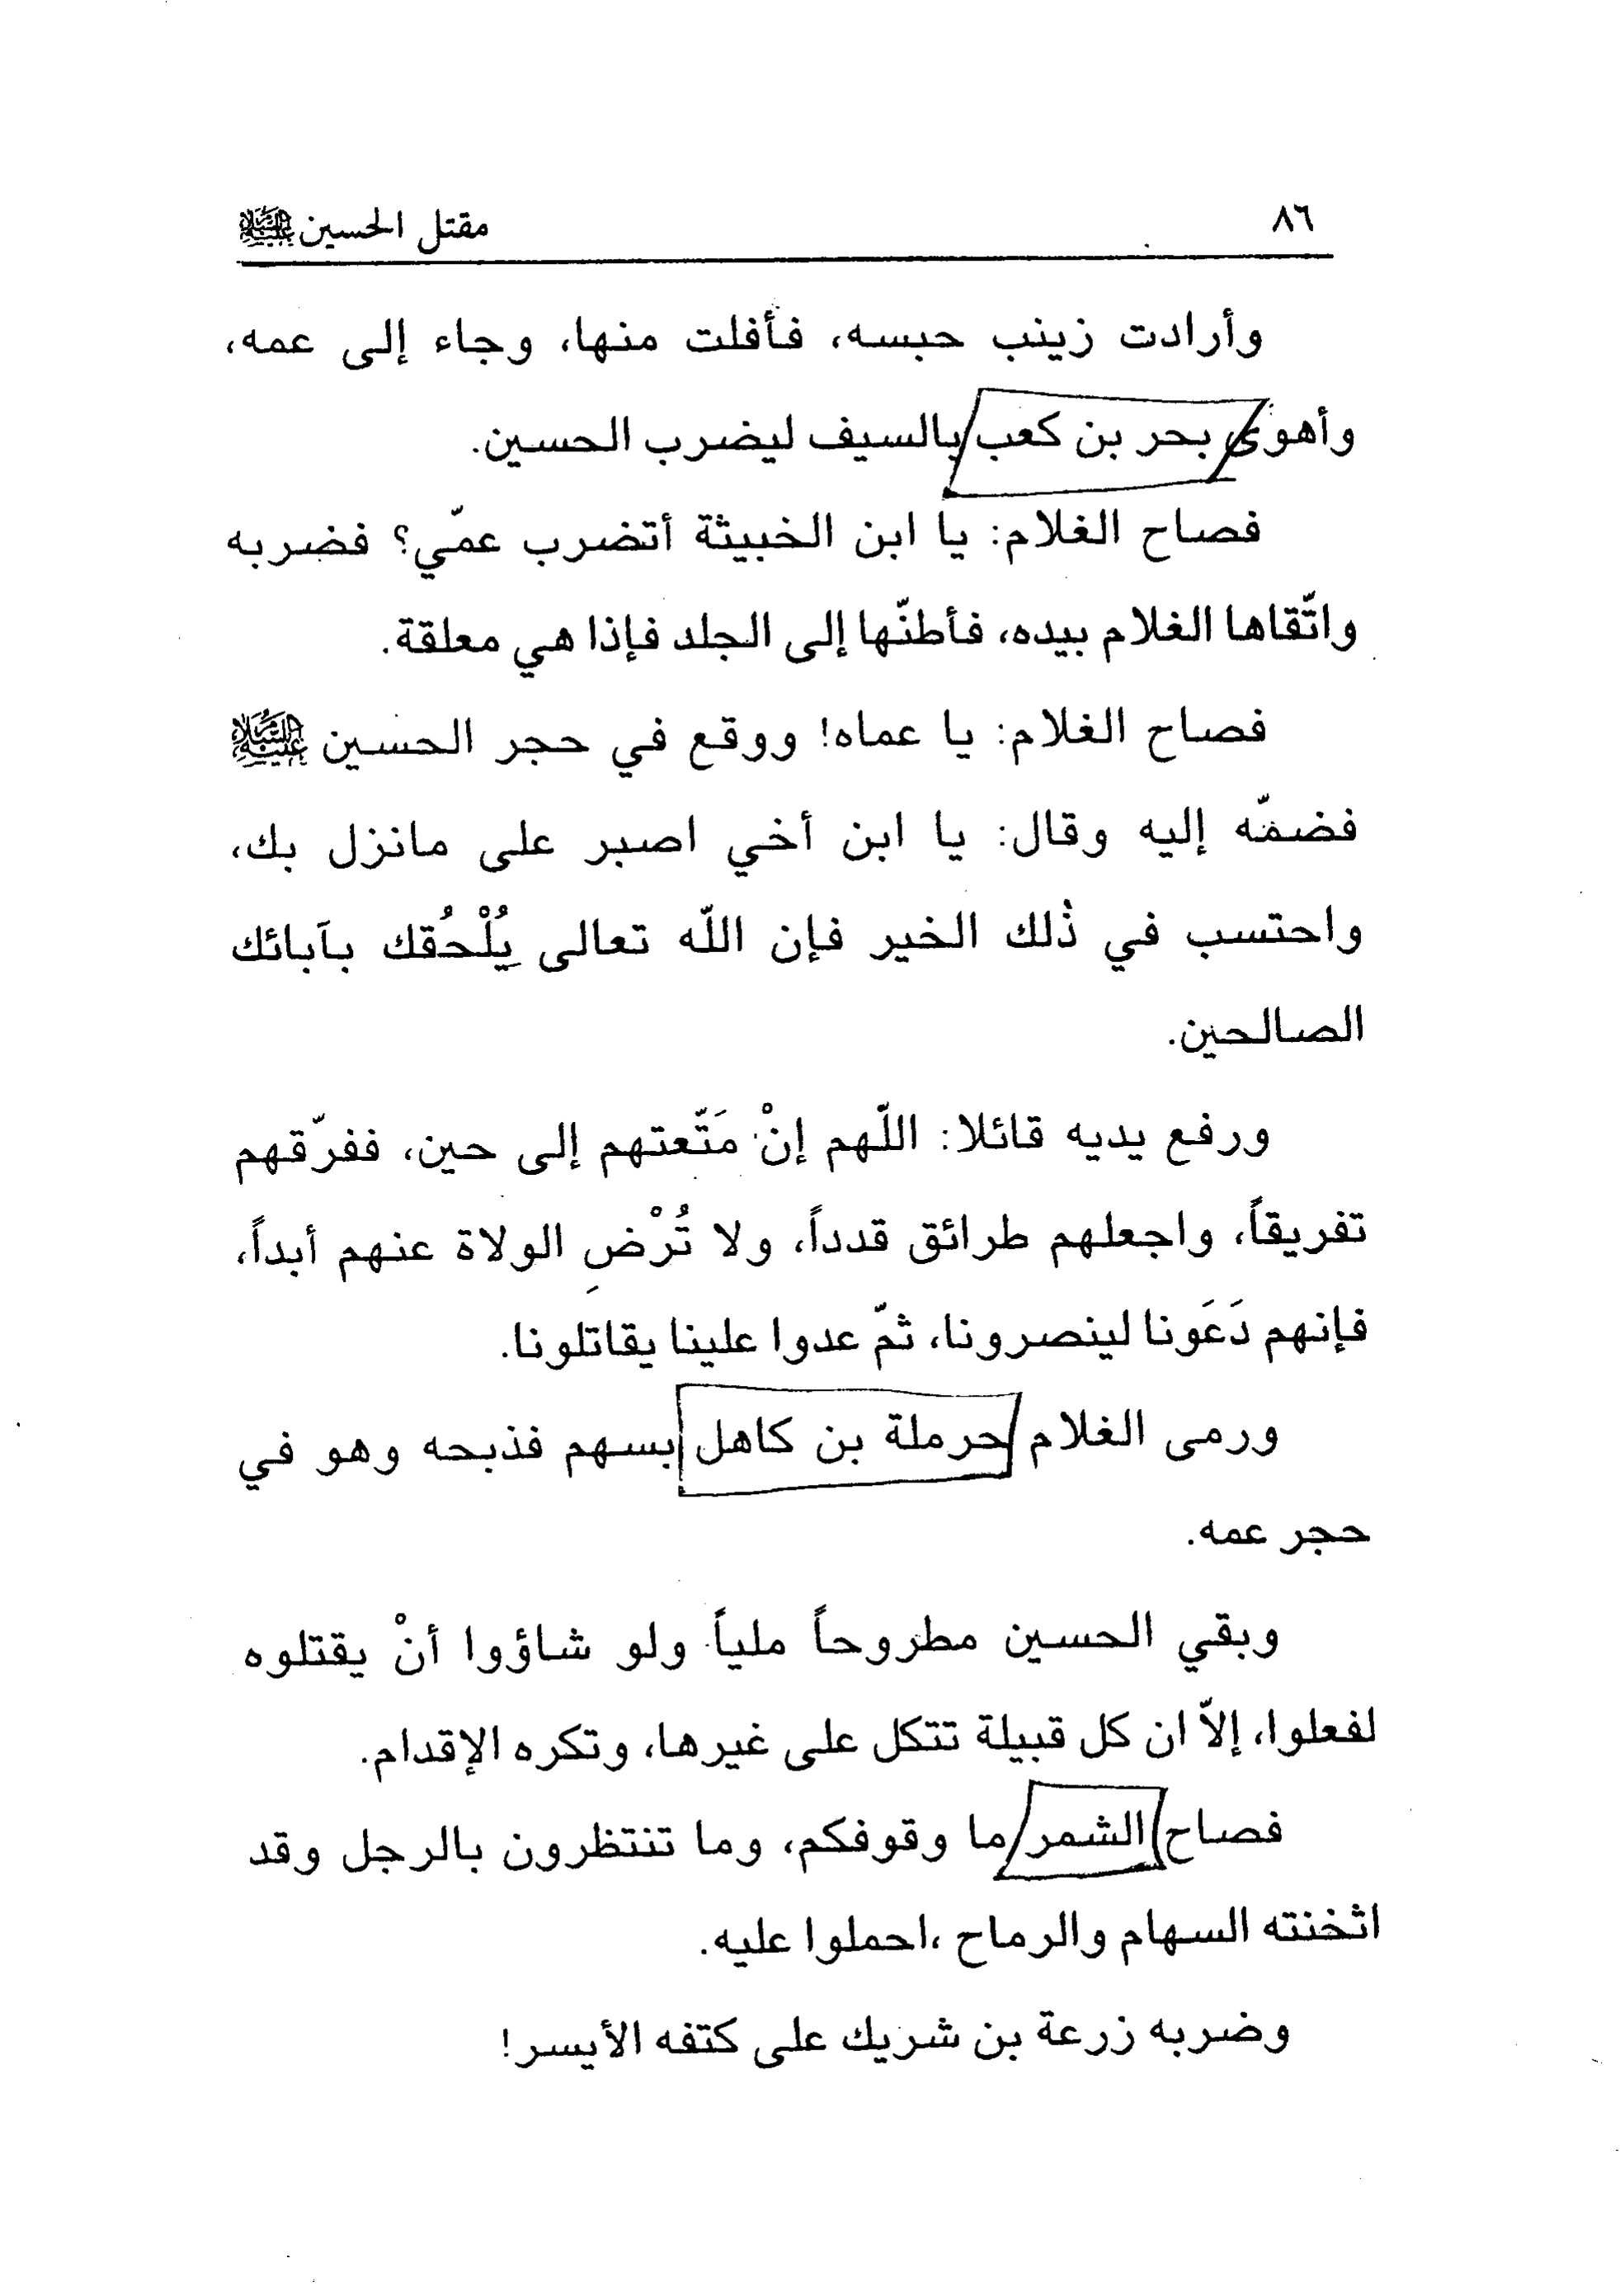 ٨٦
مقتل الحسين عليه السلام
وأرادت زينب حبسه، فأفلت منها، وجاء إلى عمه،
وأهوى بحر بن كعب بالسيف ليضرب الحسين.
فصاح الغلام: يا ابن الخبيثة أتضرب عمّي؟ فضربه
واتّقاها الغلام بيده، فأطنّها إلى الجلد فإذا هي معلقة.
فصاح الغلام: يا عماه! ووقع في حجر الحسين عليه السلام
فضمّه إليه وقال: يا ابن أخي اصبر على مانزل بك،
واحتسب في ذٰلك الخير فإن اللّه تعالى يُلْحُقك بآبائك
الصالحين.
ورفع يديه قائلا: اللّهم إنْ مَتّعتهم إلى حين، ففرّقهم
تفريقاً، واجعلهم طرائق قدداً، ولا تُرْضِ الولاة عنهم أبداً،
فإنهم دَعَونا لينصرونا، ثمّ عدوا علينا يقاتلونا.
ورمى الغلام حرملة بن كاهل بسهم فذبحه وهو في
حجر عمه.
وبقي الحسين مطروحاً ملياً ولو شاؤوا أنْ يقتلوه
لفعلوا، إلاّ ان كل قبيلة تتكل على غيرها، وتكره الإقدام.
فصاح الشمر ما وقوفكم، وما تنتظرون بالرجل وقد
اثخنته السهام والرماح ،احملوا عليه.
وضربه زرعة بن شريك على كتفه الأيسر!